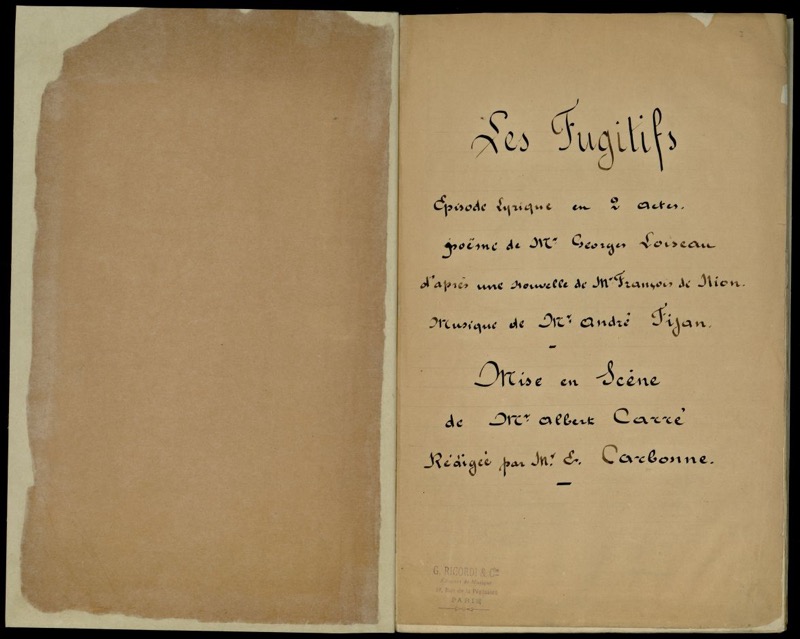 Les Fugitifs
Episode Lyrique en 2 actes.
poëme de Mr Georges Loiseau
d'après une nouvelle de Mr François de Nion.
Musique de Mr André Fijan.
Mise en Scène
de Mr Albert Carré
Rédigée par Mr E. Carbonne.
G. RICORDI & Cie
PARIS